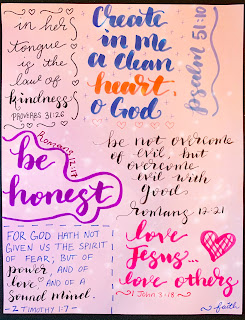 in her
tongue
is the
law of
kindness
PROVERBS 31:26
Create
in me
a clean
heart,
O God
psalm 51:10
Romans 12:17
be
honest
be not overcome
of evil, but
overcome
evil with
good.
romans 12:21
FOR GOD HATH NOT
GIVEN US THE SPIRIT
OF FEAR; BUT OF
power, AND OF
love, AND OF A
Sound Mind.
2 TIMOTHY 1:7
love
Jesus...
love others
1 John 3:18
-faith